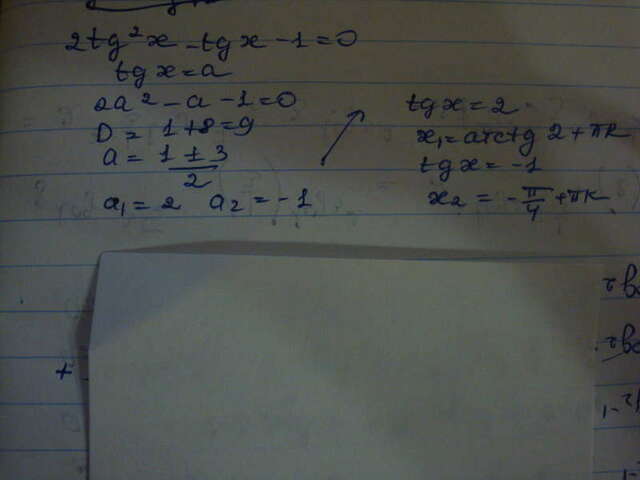 2tg²x - tgx - 1 = 0
tgx = a
2a² - a - 1 = 0
D = 1 + 8 = 9
a = 1 ± 3
2
a₁ = 2 a₂ = -1
tgx = 2
x₁ = arctg 2 + πk
tgx = -1
x₂ = -π/4 + πk
+